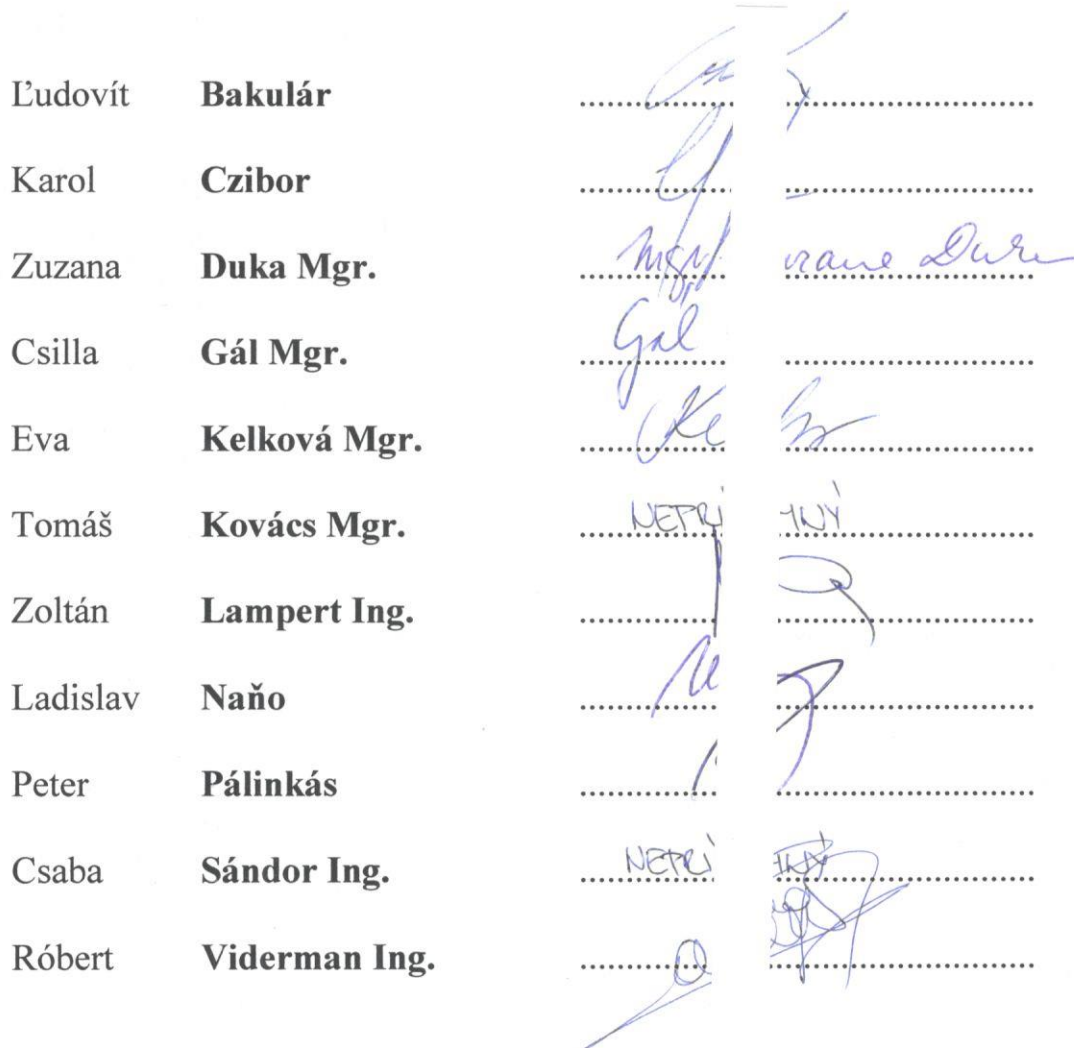 Ľudovít Bakulár
Karol Czibor
Zuzana Duka Mgr. Mgr.
Csilla Gál Mgr. Gál
Eva Kelková Mgr. Ke
Tomáš Kovács Mgr. NEPRÍ MNÝ
Zoltán Lampert Ing.
Ladislav Naňo
Peter Pálinkás
Csaba Sándor Ing. NEPRÍ MNÝ
Róbert Viderman Ing.